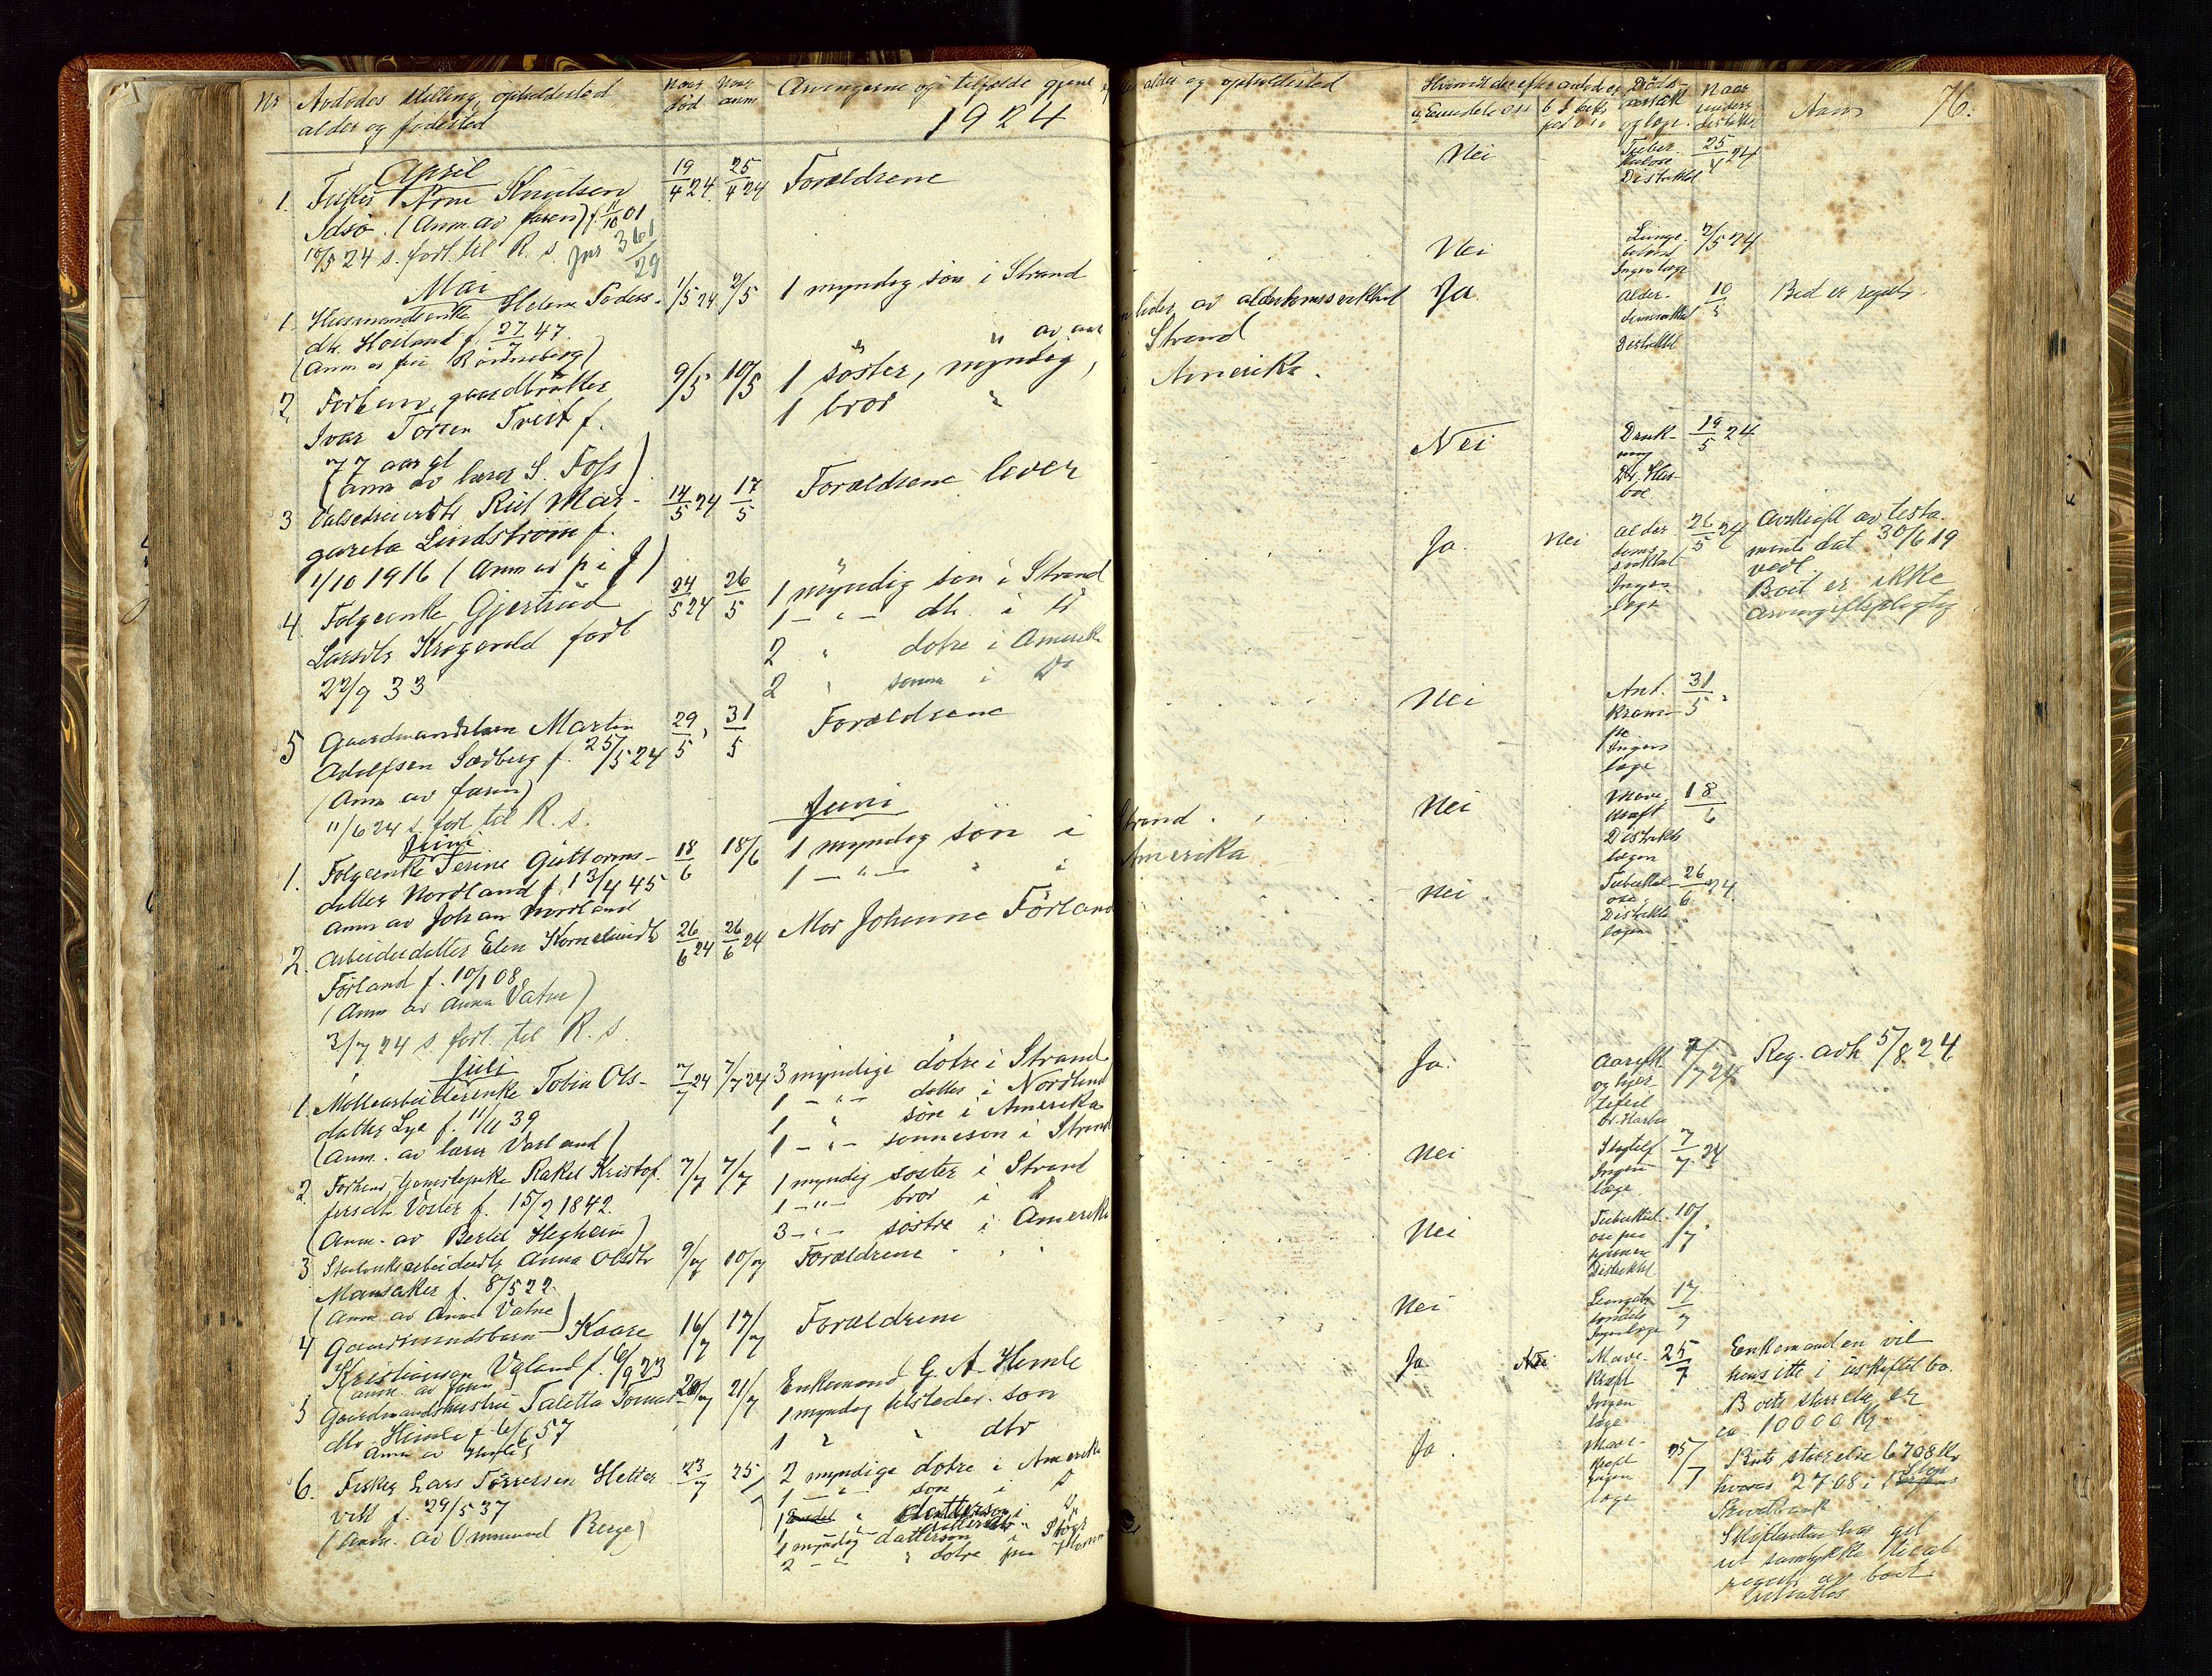 Nr Avdødes stilling, opholdssted
alder og fødested
Naar død
Naar anm
Arvingerne og i tilfælde gjen
alder og opholdssted
og læge.
Naar
Anm
76.
1924
April
1. Fisker Arne Knudsen
Idsø. (Anm. av faren) f. 11/10 01
10/5 24 s. fort. til R. s. Jnr 361/29
19/4 24 25/4 24 Forældrene
Nei
Tuberkulose
Distriktsl
25/4 24
Mai
1 Husmandsenke Helene Peders-
dtr. Høiland f. 27/7 47
1/5 24 2/5 1 myndig søn i Strand
Nei
Lunge-
Ingen læge
2/5 24
2 Forhenv. gaardbruker
Ivar Torsen Tveit f.
77 aar gl
(Anm av lærer S. Foss)
9/5 10/5 1 søster, myndig, i Strand
1 bror " i Amerika.
lider av alderdomssvakhet
Ja
Alder-
Distriktsl
10/5
Bed er regist.
3
gareta Lindstrøm f.
1/10 1916 (Anm av p i J)
14/5 24 17/5 Forældrene lever
Nei
Druk-
ning
19/5 24
4. Følgeenke Gjertrud
Larsdtr Krogevold født
22/9 33
24/5 24 26/5 1 myndig søn i Strand
1 - " - dtr. i D
2 " døtre i Amerik
2 " sønner i D
Ja. Nei
Alder-
doms-
svakhet
Ingen
læge
26/5 24
Avskrift av testa-
mente dat 30/6 19
vedl.
Boet er ikke
arveavgiftspligtig
5 Gaardmandsbarn Martin
Adolfsen Sedberg f. 25/5 24
(Anm av faren)
11/6 24 s. fort til R. s.
29/5 31/5 Forældrene
Nei
Krampe
Ingen
læge
31/5
Juni
Juni
1. Følgeenke Serine Guttorms-
datter Nordland f. 13/4 45
Anm av Johan Nordland
18/6 18/6 1 myndig søn i Strand.
1 - " - " i Amerika
Nei
Mave-
kræft
Distrikts
lægen
18/6
2. Arbeiderdatter Elen Korneliusdtr
Førland f. 10/1 08
(Anm av Anna Vatne)
3/7 24 s fort. til R. s.
26/6 24 26/6 24 Mor Johanne Førland
Nei
Tuberkul-
ose
Distrikts
lægen
26/6 24
Juli
1. Møllearbeiderenke Tobia Ols-
datter Lye f. 11/11 39
(Anm. av lærer Vasland)
7/7 24 7/7 24 3 myndige døtre i Strand
1 - " - datter i Nordland
1 " søn i Amerika
1 - " - sønnesøn i Strand
Ja.
7/7 24
Reg. avh 5/8 24
2 Rakel Kristof-
fersdtr. Vøster f. 15/2 1842.
(Anm. av Bertel Hegheim)
7/7 7/7 1 myndig søster i Strand
1 - " - bror i D
3 - " - søstre i Amerika
Nei
Slagtilf
Ingen
læge
7/7 24
3 Anna Olsdtr
Mansaker f. 8/5 22.
(Anm av Anna Vatne)
9/7 10/7 Forældrene
Nei
Tuberkul-
ose paa
hjernen
Distriktsl
10/7
4 Gaardmandsbarn Kaare
Kristiansen Valand f. 6/9 23
Anm. av faren
16/7 17/7 Forældrene
Nei
Ingen læge
17/7
5 Gaardmandshustru Taletta Tormo-
dtr. Heimle f. 6/6 57
20/7 21/7 Enkemand G. A. Hemle
1 myndig tilstedev. søn
1 " " dtr
Ja Nei
Mave-
kræft
Ingen
læge
25/7
Enkemanden vil
hensitte i uskiftet bo.
Boets størrelse er
ca. 10000 kr.
6. Fisker Lars Tørresen Hetter
vik f. 29/5 37
(Anm. av Ommund Berge)
23/7 25/7 2 myndige døtre i Amerika
1 - " - søn i D
1 myndig dattersøn i
2 - " - " døtre paa
Ja.
Mave-
kræft
Ingen
læge
25/7
Boets størrelse 6708 kr
hvorav 2768 i
Skifteretten har git
sit samtykke til at